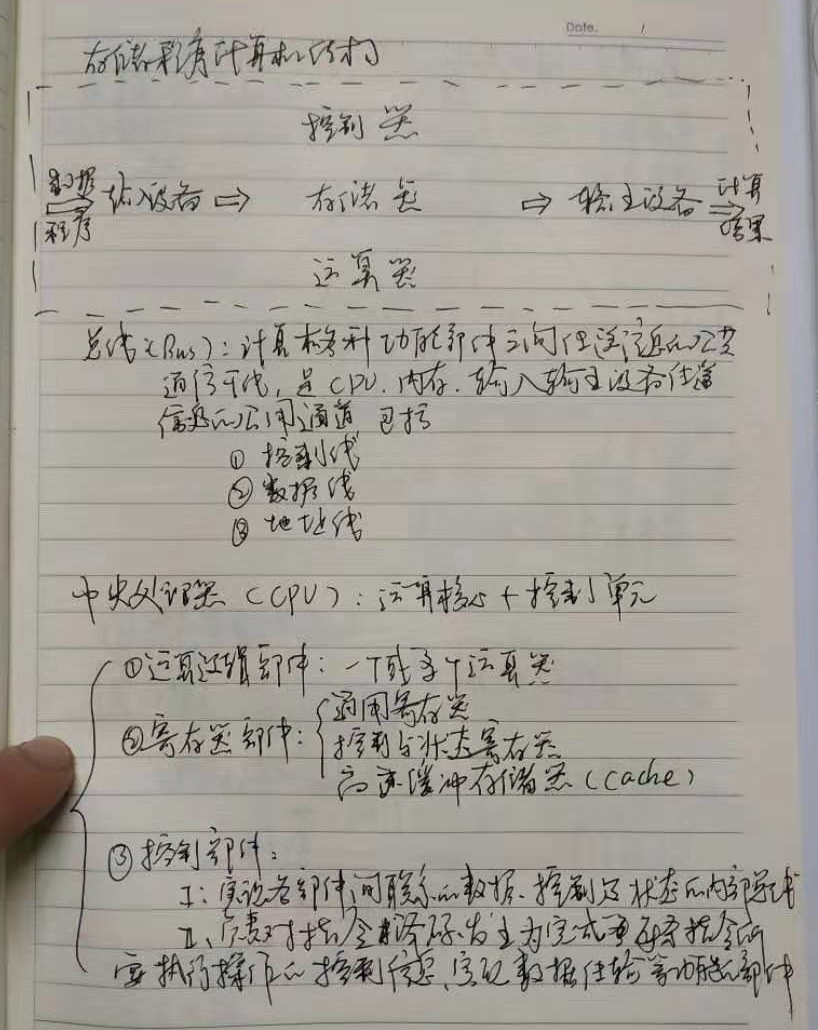 Date.
存储程序计算机结构
控制器
数据
程序
输入设备 ⇒ 存储器 ⇒ 输出设备 ⇒
计算
结果
运算器
总线(Bus):计算机各种功能部件之间传送信息的公共
通信干线,是CPU.内存.输入输出设备传递
信息的公用通道,包括
① 控制线
② 数据线
③ 地址线
中央处理器(CPU):运算核心+控制单元
①运算逻辑部件:一个或多个运算器
②寄存器部件:
通用寄存器
控制与状态寄存器
高速缓冲存储器(cache)
③控制部件:
I:实现各部件间联系的数据、控制及状态的内部总线
II、负责对指令译码、发出为完成每条指令所
要执行操作的控制信息、实现数据传输等功能的部件